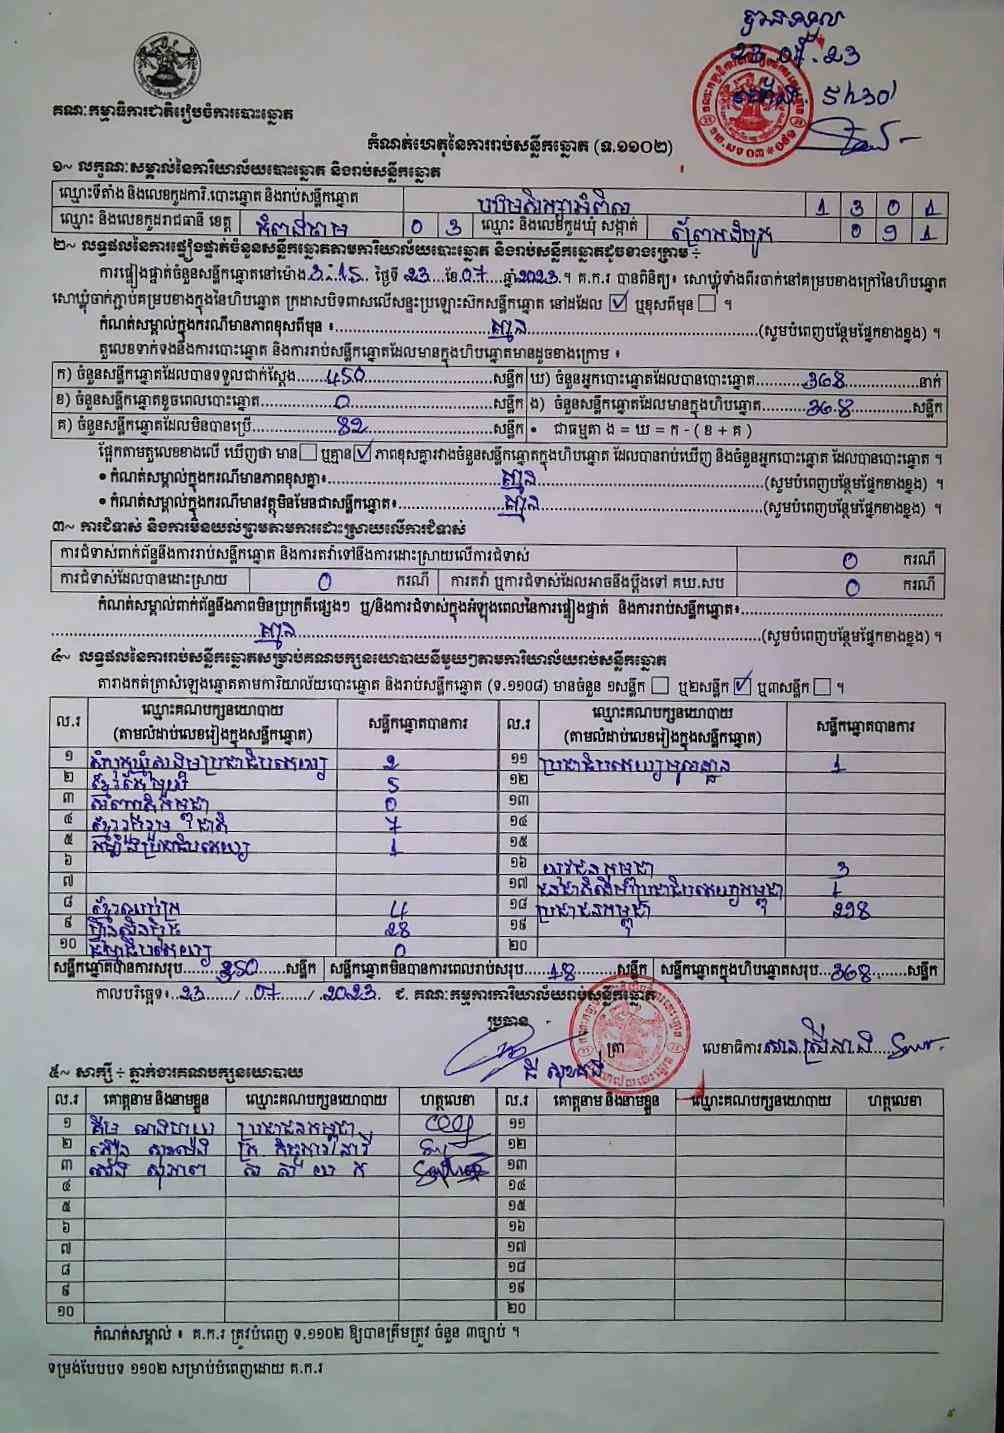 បានទទួល
23.07.23
ម៉ោង 5h30'
គណៈកម្មាធិការជាតិរៀបចំការបោះឆ្នោត
កំណត់ហេតុនៃការរាប់សន្លឹកឆ្នោត (ទ.១១០២)
១~ លក្ខណៈសម្គាល់នៃការិយាល័យបោះឆ្នោត និងរាប់សន្លឹកឆ្នោត
ឈ្មោះទីតាំង និងលេខកូដការិ.បោះឆ្នោត និងរាប់សន្លឹកឆ្នោត 1 3 0 1
ឈ្មោះ និងលេខកូដរាជធានី ខេត្ត កំពង់ចាម 0 3 ឈ្មោះ និងលេខកូដឃុំ សង្កាត់ 0 9 1
២~ លទ្ធផលនៃការផ្ទៀងផ្ទាត់ចំនួនសន្លឹកឆ្នោតតាមការិយាល័យបោះឆ្នោត និងរាប់សន្លឹកឆ្នោតដូចខាងក្រោម ៖
ការផ្ទៀងផ្ទាត់ចំនួនសន្លឹកឆ្នោតនៅម៉ោង 3:15 ថ្ងៃទី 23 ខែ 07 ឆ្នាំ 2023 ។ គ.ក.រ បានពិនិត្យ៖ សោឃ្លុំទាំងពីរចាក់នៅគម្របខាងក្រៅនៃហិបឆ្នោត
សោឃ្លុំចាក់ភ្ជាប់គម្របខាងក្នុងនៃហិបឆ្នោត ក្រដាសបិទពាសលើសន្ទះប្រឡោះស៊កសន្លឹកឆ្នោត នៅដដែល ☑ ឬខុសពីមុន ☐ ។
កំណត់សម្គាល់ក្នុងករណីមានភាពខុសពីមុន ៖ គ្មាន (សូមបំពេញបន្ថែមផ្នែកខាងខ្នង) ។
តួលេខទាក់ទងនឹងការបោះឆ្នោត និងការរាប់សន្លឹកឆ្នោតដែលមានក្នុងហិបឆ្នោតមានដូចខាងក្រោម ៖
ក) ចំនួនសន្លឹកឆ្នោតដែលបានទទួលជាក់ស្តែង 450 សន្លឹក ឃ) ចំនួនអ្នកបោះឆ្នោតដែលបានបោះឆ្នោត 368 នាក់
ខ) ចំនួនសន្លឹកឆ្នោតខូចពេលបោះឆ្នោត 0 សន្លឹក ង) ចំនួនសន្លឹកឆ្នោតដែលមានក្នុងហិបឆ្នោត 368 សន្លឹក
គ) ចំនួនសន្លឹកឆ្នោតដែលមិនបានប្រើ 82 សន្លឹក • ជាធម្មតា ង = ឃ = ក - ( ខ + គ )
ផ្អែកតាមតួលេខខាងលើ ឃើញថា មាន ☐ ឬគ្មាន ☑ ភាពខុសគ្នារវាងចំនួនសន្លឹកឆ្នោតក្នុងហិបឆ្នោត ដែលបានរាប់ឃើញ និងចំនួនអ្នកបោះឆ្នោត ដែលបានបោះឆ្នោត ។
• កំណត់សម្គាល់ក្នុងករណីមានភាពខុសគ្នា៖ គ្មាន (សូមបំពេញបន្ថែមផ្នែកខាងខ្នង) ។
• កំណត់សម្គាល់ក្នុងករណីមានវត្ថុមិនមែនជាសន្លឹកឆ្នោត៖ គ្មាន (សូមបំពេញបន្ថែមផ្នែកខាងខ្នង) ។
៣~ ការជំទាស់ និងការមិនយល់ព្រមតាមការដោះស្រាយលើការជំទាស់
ការជំទាស់ពាក់ព័ន្ធនឹងការរាប់សន្លឹកឆ្នោត និងការតវ៉ាទៅនឹងការដោះស្រាយលើការជំទាស់ 0 ករណី
ការជំទាស់ដែលបានដោះស្រាយ 0 ករណី ការតវ៉ា ឬការជំទាស់ដែលអាចនឹងប្តឹងទៅ គឃ.សប 0 ករណី
កំណត់សម្គាល់ពាក់ព័ន្ធនឹងភាពមិនប្រក្រតីផ្សេងៗ ឬ/និងការជំទាស់ក្នុងអំឡុងពេលនៃការផ្ទៀងផ្ទាត់ និងការរាប់សន្លឹកឆ្នោត៖
គ្មាន (សូមបំពេញបន្ថែមផ្នែកខាងខ្នង) ។
៤~ លទ្ធផលនៃការរាប់សន្លឹកឆ្នោតសម្រាប់គណបក្សនយោបាយនីមួយៗតាមការិយាល័យរាប់សន្លឹកឆ្នោត
តារាងកត់ត្រាសំឡេងឆ្នោតតាមការិយាល័យបោះឆ្នោត និងរាប់សន្លឹកឆ្នោត (ទ.១១០៨) មានចំនួន ១សន្លឹក ☐ ឬ២សន្លឹក ☑ ឬ៣សន្លឹក ☐ ។
ល.រ ឈ្មោះគណបក្សនយោបាយ (តាមលំដាប់លេខរៀងក្នុងសន្លឹកឆ្នោត) សន្លឹកឆ្នោតបានការ ល.រ ឈ្មោះគណបក្សនយោបាយ (តាមលំដាប់លេខរៀងក្នុងសន្លឹកឆ្នោត) សន្លឹកឆ្នោតបានការ
១ សំបុកឃ្មុំសង្គមប្រជាធិបតេយ្យ 2 ១១ ប្រជាធិបតេយ្យមូលដ្ឋាន 1
២ ខ្មែរតែមួយ 5 ១២
៣ សញ្ជាតិកម្ពុជា 0 ១៣
៤ ខ្មែររួបរួមជាតិ 7 ១៤
៥ កម្លាំងប្រជាធិបតេយ្យ 1 ១៥
៦ ១៦ យុវជនកម្ពុជា 3
៧ ១៧ ជនជាតិដើមប្រជាធិបតេយ្យកម្ពុជា 1
៨ ខ្មែរឈប់ក្រ 4 ១៨ ប្រជាជនកម្ពុជា 298
៩ ហ៊្វុនស៊ិនប៉ិច 28 ១៩
១០ ធម្មាធិបតេយ្យ 0 ២០
សន្លឹកឆ្នោតបានការសរុប 350 សន្លឹក សន្លឹកឆ្នោតមិនបានការពេលរាប់សរុប 18 សន្លឹក សន្លឹកឆ្នោតក្នុងហិបឆ្នោតសរុប 368 សន្លឹក
កាលបរិច្ឆេទ៖ 23 / 07 / 2023 ជ. គណៈកម្មការការិយាល័យរាប់សន្លឹកឆ្នោត
ប្រធាន
ត្រា លេខាធិការ
៥~ សាក្សី ៖ ភ្នាក់ងារគណបក្សនយោបាយ
ល.រ គោត្តនាម និងនាមខ្លួន ឈ្មោះគណបក្សនយោបាយ ហត្ថលេខា ល.រ គោត្តនាម និងនាមខ្លួន ឈ្មោះគណបក្សនយោបាយ ហត្ថលេខា
១ ប្រជាជនកម្ពុជា ១១
២ ១២
៣ ១៣
៤ ១៤
៥ ១៥
៦ ១៦
៧ ១៧
៨ ១៨
៩ ១៩
១០ ២០
កំណត់សម្គាល់ ៖ គ.ក.រ ត្រូវបំពេញ ទ.១១០២ ឱ្យបានត្រឹមត្រូវ ចំនួន ៣ច្បាប់ ។
ទម្រង់បែបបទ ១១០២ សម្រាប់បំពេញដោយ គ.ក.រ